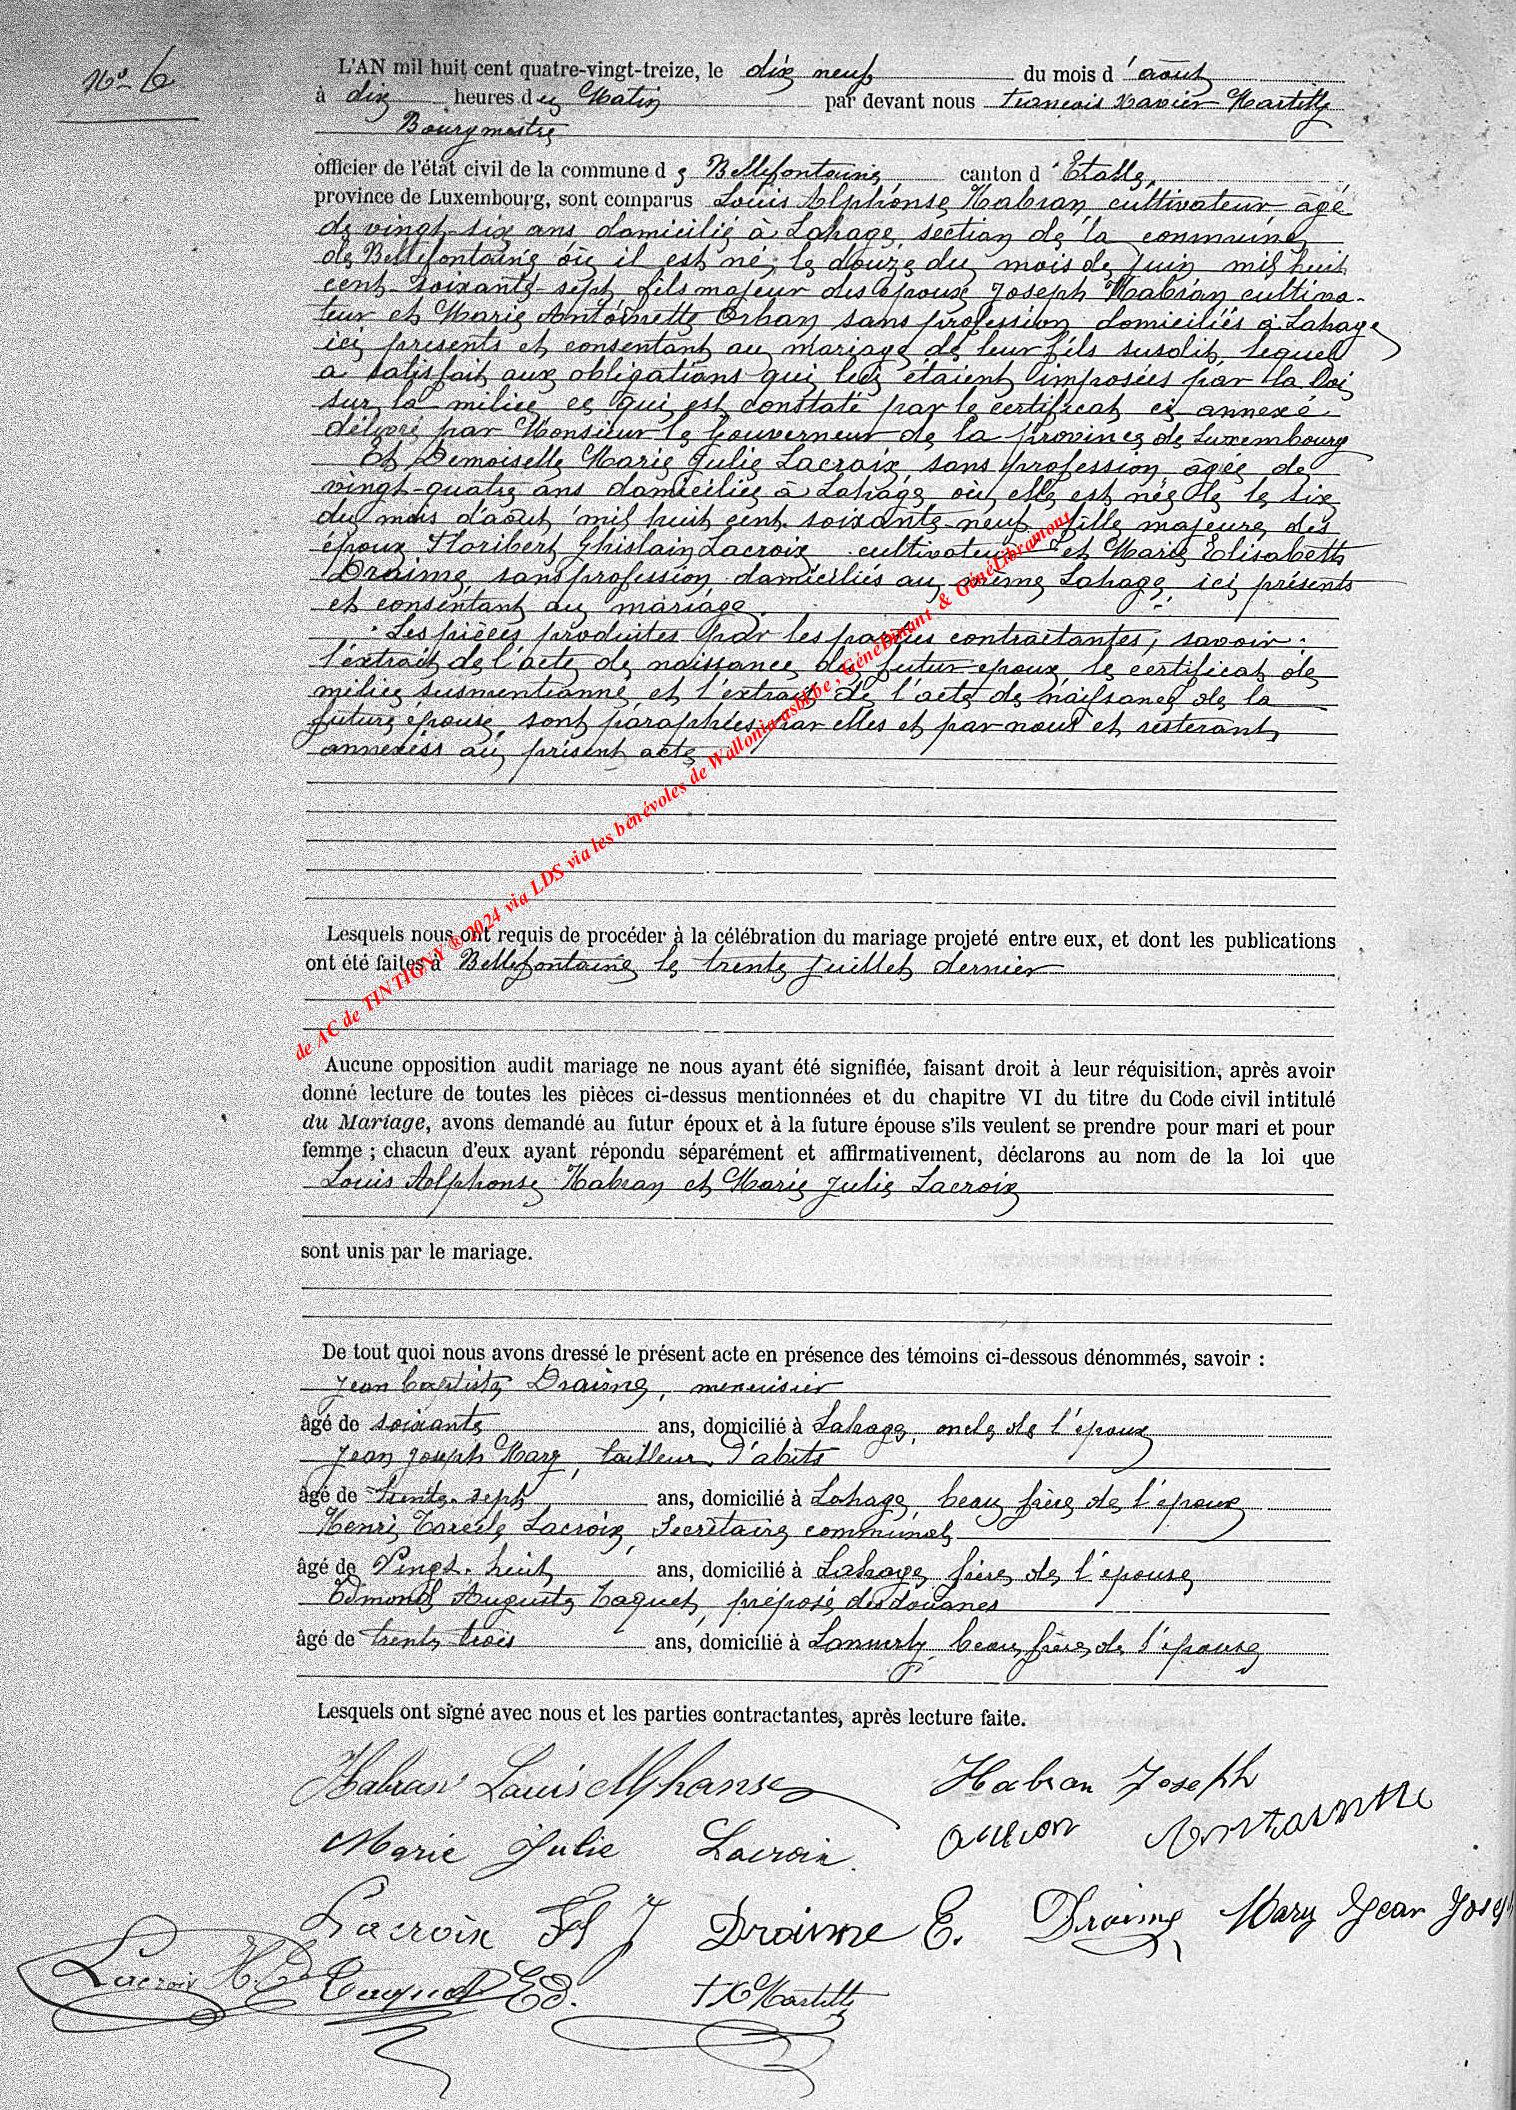 No 6
L'AN mil huit cent quatre-vingt-treize, le dix neuf du mois d'août
à dix heures du Matin par devant nous François Xavier Martilly
Bourgmestre
officier de l'état civil de la commune de Bellefontaine, canton d'Etalle,
province de Luxembourg, sont comparus Louis Alphonse Habran cultivateur, âgé
de vingt-six ans domicilié à Lahage, section de la commune
de Bellefontaine où il est né, le douze du mois de Juin mil huit
cent soixante-sept, fils majeur des époux Joseph Habran cultiva-
teur et Marie Antoinette Orban sans profession domiciliés à Lahage
ici présents et consentant au mariage de leur fils susdit, lequel
a satisfait aux obligations qui lui étaient imposées par la loi
sur la milice ce qui est constaté par le certificat ci annexé
délivré par Monsieur le Gouverneur de la province de Luxembourg
Et Demoiselle Marie Julie Lacroix sans profession, âgée de
vingt-quatre ans domiciliée à Lahage où elle est née le six
du mois d'août mil huit cent soixante-neuf fille majeure des
époux Floribert Ghislain Lacroix cultivateur et Marie Elisabeth
Draime, sans profession domiciliés au même Lahage, ici présents
et consentant au mariage.
Les pièces produites par les parties contractantes, savoir :
l'extrait de l'acte de naissance du futur époux, le certificat de
milice susmentionné et l'extrait de l'acte de naissance de la
future épouse, sont paraphées par elles et par nous et resteront
annexées au présent acte
Lesquels nous ont requis de procéder à la célébration du mariage projeté entre eux, et dont les publications
ont été faites à Bellefontaine le trente Juillet dernier
de AC de TINTIGNY ® 2024 via LDS via les bénévoles de Wallonia-asbl.be, GénéDinant & GénéLibramont
Aucune opposition audit mariage ne nous ayant été signifiée, faisant droit à leur réquisition, après avoir
donné lecture de toutes les pièces ci-dessus mentionnées et du chapitre VI du titre du Code civil intitulé
du Mariage, avons demandé au futur époux et à la future épouse s'ils veulent se prendre pour mari et pour
femme ; chacun d'eux ayant répondu séparément et affirmativement, déclarons au nom de la loi que
Louis Alphonse Habran et Marie Julie Lacroix
sont unis par le mariage.
De tout quoi nous avons dressé le présent acte en présence des témoins ci-dessous dénommés, savoir :
Jean Baptiste Draime, menuisier
âgé de soixante ans, domicilié à Lahage, oncle de l'époux
Jean Joseph Mary, tailleur d'abits
âgé de trente-sept ans, domicilié à Lahage, beau frère de l'époux
Henri Lacroix, Secrétaire communal
âgé de Vingt-huit ans, domicilié à Lahage, frère de l'épouse
Edmond Auguste Taquet, préposé des douanes
âgé de trente trois ans, domicilié à beau frère de l'épouse
Lesquels ont signé avec nous et les parties contractantes, après lecture faite.
Habran Louis Alphonse Habran Joseph
Marie Julie Lacroix Antoinette
Lacroix Draime E. Draime Mary Jean Joseph
Lacroix Taquet Ed. FX Martilly